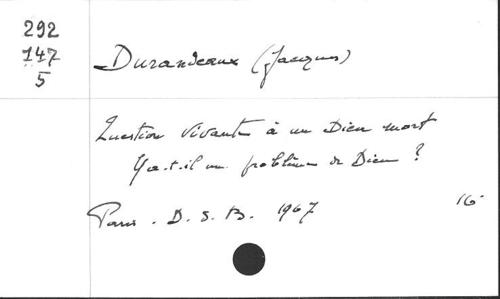 292
147
5
Durandeaux (Jacques)
Question vivante à un Dieu mort
Y a-t-il un problème de Dieu ?
Paris . D. d. B. 1967
16